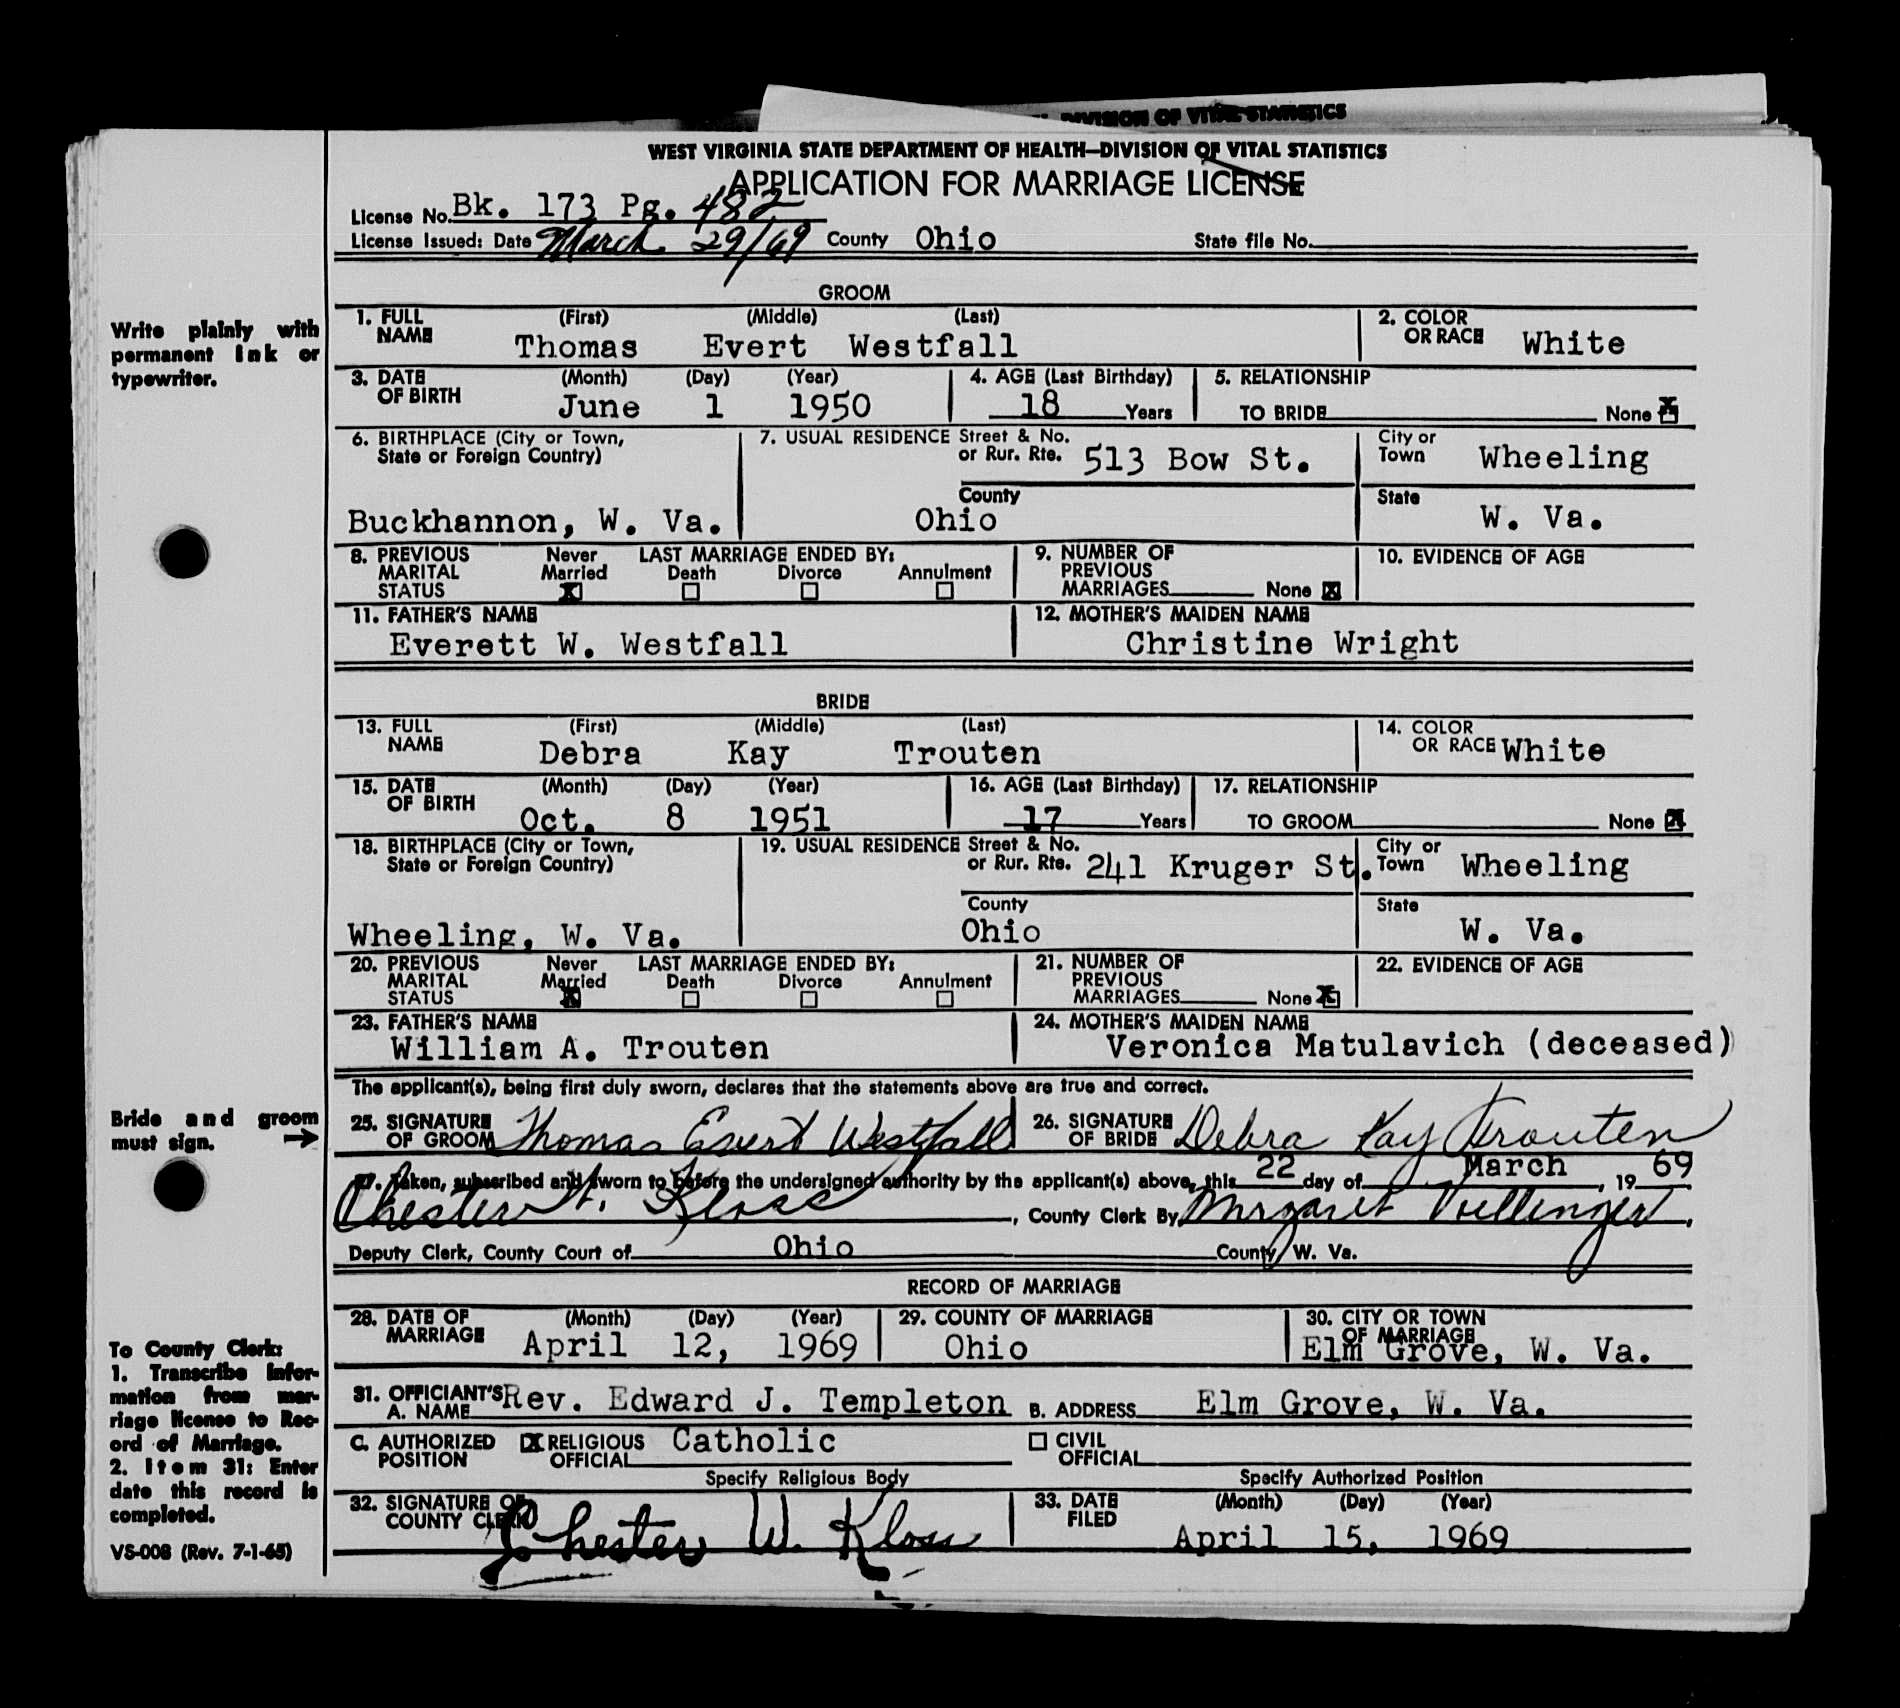 DIVISION OF VITAL STATISTICS
WEST VIRGINIA STATE DEPARTMENT OF HEALTH—DIVISION OF VITAL STATISTICS
APPLICATION FOR MARRIAGE LICENSE
License No. Bk. 173 Pg. 482
License Issued: Date March 29/69 County Ohio State file No.
GROOM
1. FULL NAME (First) (Middle) (Last) 2. COLOR OR RACE
Thomas Evert Westfall White
3. DATE OF BIRTH (Month) (Day) (Year) 4. AGE (Last Birthday) 5. RELATIONSHIP
June 1 1950 18 Years TO BRIDE None X
6. BIRTHPLACE (City or Town, State or Foreign Country) 7. USUAL RESIDENCE Street & No. or Rur. Rte. 513 Bow St. City or Town Wheeling
Buckhannon, W. Va. County Ohio State W. Va.
8. PREVIOUS MARITAL STATUS Never Married X LAST MARRIAGE ENDED BY: Death Divorce Annulment 9. NUMBER OF PREVIOUS MARRIAGES None X 10. EVIDENCE OF AGE
11. FATHER'S NAME 12. MOTHER'S MAIDEN NAME
Everett W. Westfall Christine Wright
BRIDE
13. FULL NAME (First) (Middle) (Last) 14. COLOR OR RACE
Debra Kay Trouten White
15. DATE OF BIRTH (Month) (Day) (Year) 16. AGE (Last Birthday) 17. RELATIONSHIP
Oct. 8 1951 17 Years TO GROOM None X
18. BIRTHPLACE (City or Town, State or Foreign Country) 19. USUAL RESIDENCE Street & No. or Rur. Rte. 241 Kruger St. City or Town Wheeling
Wheeling, W. Va. County Ohio State W. Va.
20. PREVIOUS MARITAL STATUS Never Married X LAST MARRIAGE ENDED BY: Death Divorce Annulment 21. NUMBER OF PREVIOUS MARRIAGES None X 22. EVIDENCE OF AGE
23. FATHER'S NAME 24. MOTHER'S MAIDEN NAME
William A. Trouten Veronica Matulavich (deceased)
The applicant(s), being first duly sworn, declares that the statements above are true and correct.
25. SIGNATURE OF GROOM Thomas Evert Westfall 26. SIGNATURE OF BRIDE Debra Kay Trouten
27. Taken, subscribed and sworn to before the undersigned authority by the applicant(s) above, this 22 day of March, 19 69
Chester W. Kloss, County Clerk By Margaret Voellinger,
Deputy Clerk, County Court of Ohio County, W. Va.
RECORD OF MARRIAGE
28. DATE OF MARRIAGE (Month) (Day) (Year) 29. COUNTY OF MARRIAGE 30. CITY OR TOWN OF MARRIAGE
April 12, 1969 Ohio Elm Grove, W. Va.
31. OFFICIANT'S A. NAME Rev. Edward J. Templeton B. ADDRESS Elm Grove, W. Va.
C. AUTHORIZED POSITION X RELIGIOUS OFFICIAL Catholic CIVIL OFFICIAL
Specify Religious Body Specify Authorized Position
32. SIGNATURE OF COUNTY CLERK Chester W. Kloss 33. DATE FILED (Month) (Day) (Year)
April 15, 1969
Write plainly with
permanent ink or
typewriter.
Bride and groom
must sign. →
To County Clerk:
1. Transcribe infor-
mation from mar-
riage license to Rec-
ord of Marriage.
2. Item 31: Enter
date this record is
completed.
VS-008 (Rev. 7-1-65)